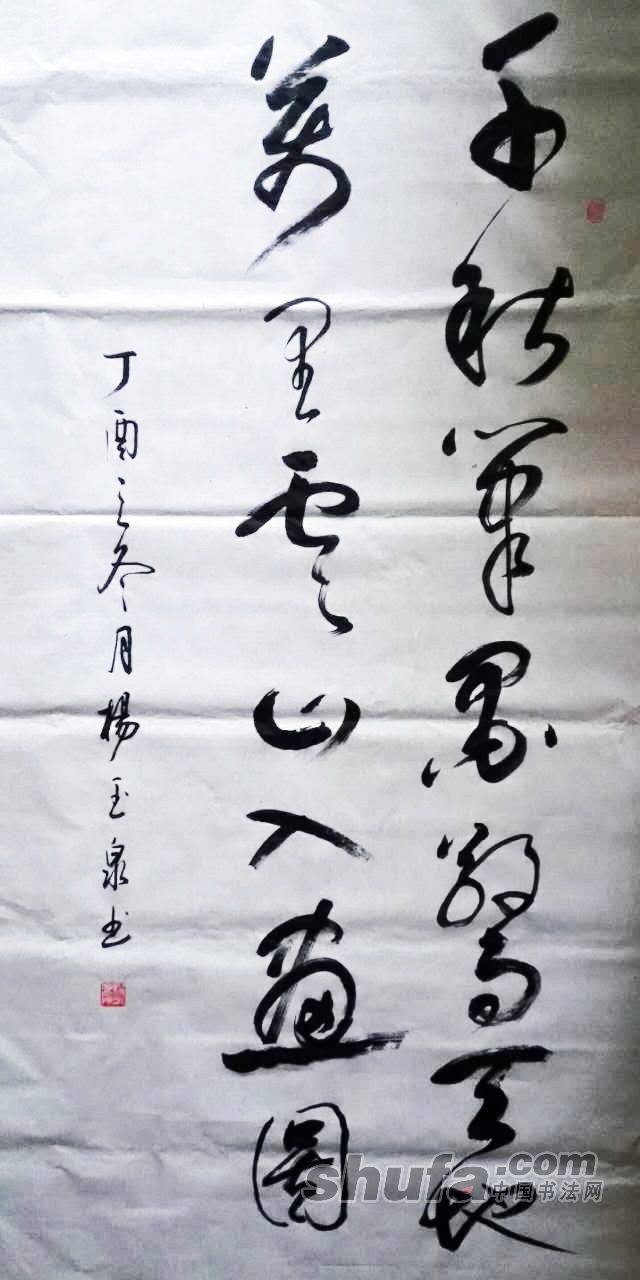 千秋筆墨驚天地
萬里雲山入畫圖
丁酉之冬月楊玉泉书
shufa.com
中国书法网